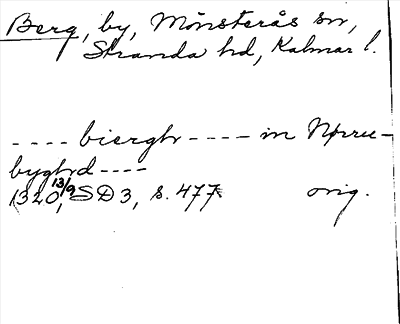 Berg, by, Mönsterås sn,
Stranda hd, Kalmar l.
---- biergh ---- in Nørru-
byghd ----
1320 13/9, SD 3, s. 477. orig.